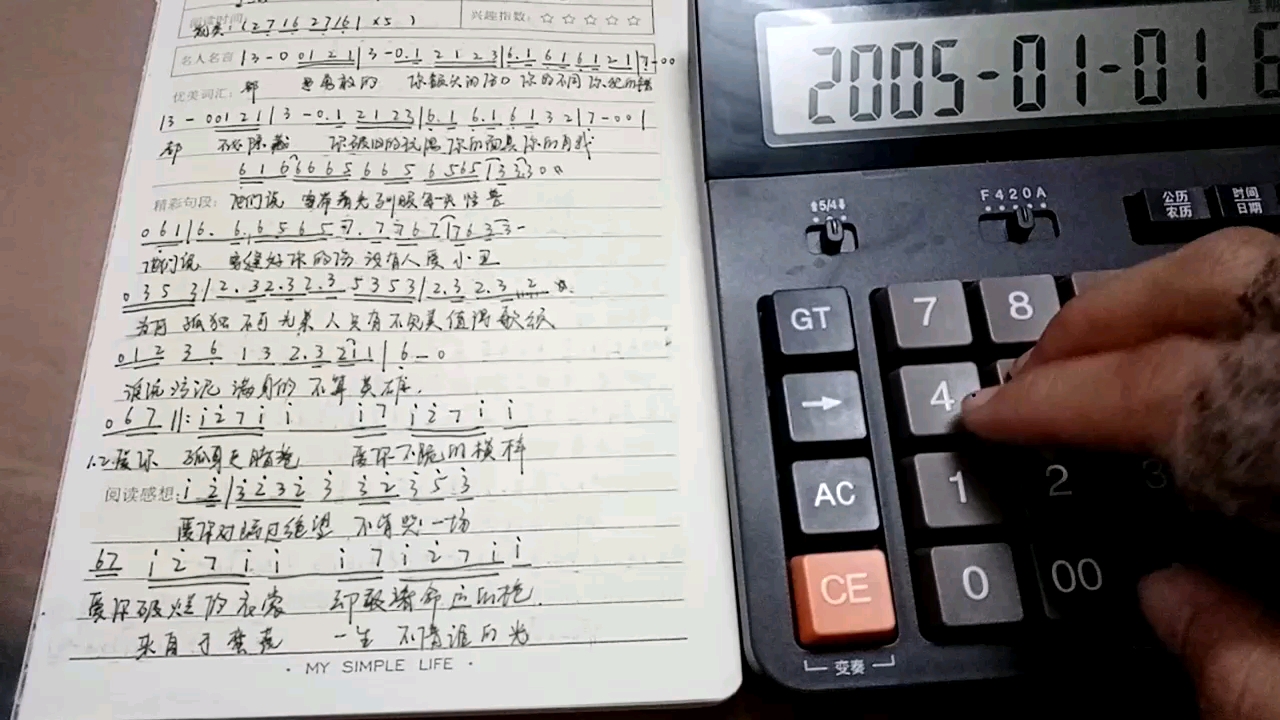 阅读时间
前奏:(1 2 7 1 6 2 7 1 6 1 ×5 )
兴趣指数: ☆ ☆ ☆ ☆ ☆
名人名言 | 3 - 0 0 1 2 1 | 3 - 0.1 2 1 2 3 | 6.1 6 1 6 1 2 1 | 7 - 0 0
都 是勇敢的 你额头的伤口 你的不同 你犯的错
优美词汇:
| 3 - 0 0 1 2 1 | 3 - 0.1 2 1 2 3 | 6.1 6.1 6 1 3 2 | 7 - 0 0 |
都 不必隐藏 你破旧的玩偶 你的面具 你的自我
6 1 6 6 6 6 5 6 6 5 6 5 6 5 7 3 3 3 0 0
精彩句段: 他们说 要带着光 驯服每一头怪兽
0 6 1 | 6. 6. 6 5 6 5 7. 7 7 6 7 7 6 3 3 -
他们说 要缝好你的伤 没有人爱小丑
0 3 5 3 | 2. 3 2. 3 2. 3 5 3 5 3 | 2. 3 2. 3 2
为何 孤独 不可 光荣 人只有不完美 值得歌颂
0 1 2 3 6 1 3 2. 3 2 1 1 | 6 - 0
谁说污泥 满身的 不算英雄.
0 6 7 ||: i 2 7 i i i 7 i 2 7 i i
1.2.爱你 孤身走暗巷 爱你不跪的模样
阅读感想: i 2 | 3 2 3 2 3 3 2 3 5 3
爱你对峙过绝望 不肯哭一场
6 7 i 2 7 i i i 7 i 2 7 i i
爱你破烂的衣裳 却敢堵命运的枪
来自于蛮荒 一生 不借谁的光
· MY SIMPLE LIFE ·
2005-01-01
5/4
F 4 2 0 A
公历
农历
时间
日期
GT 7 8
→ 4
AC 1 2 3
CE 0 00
变奏